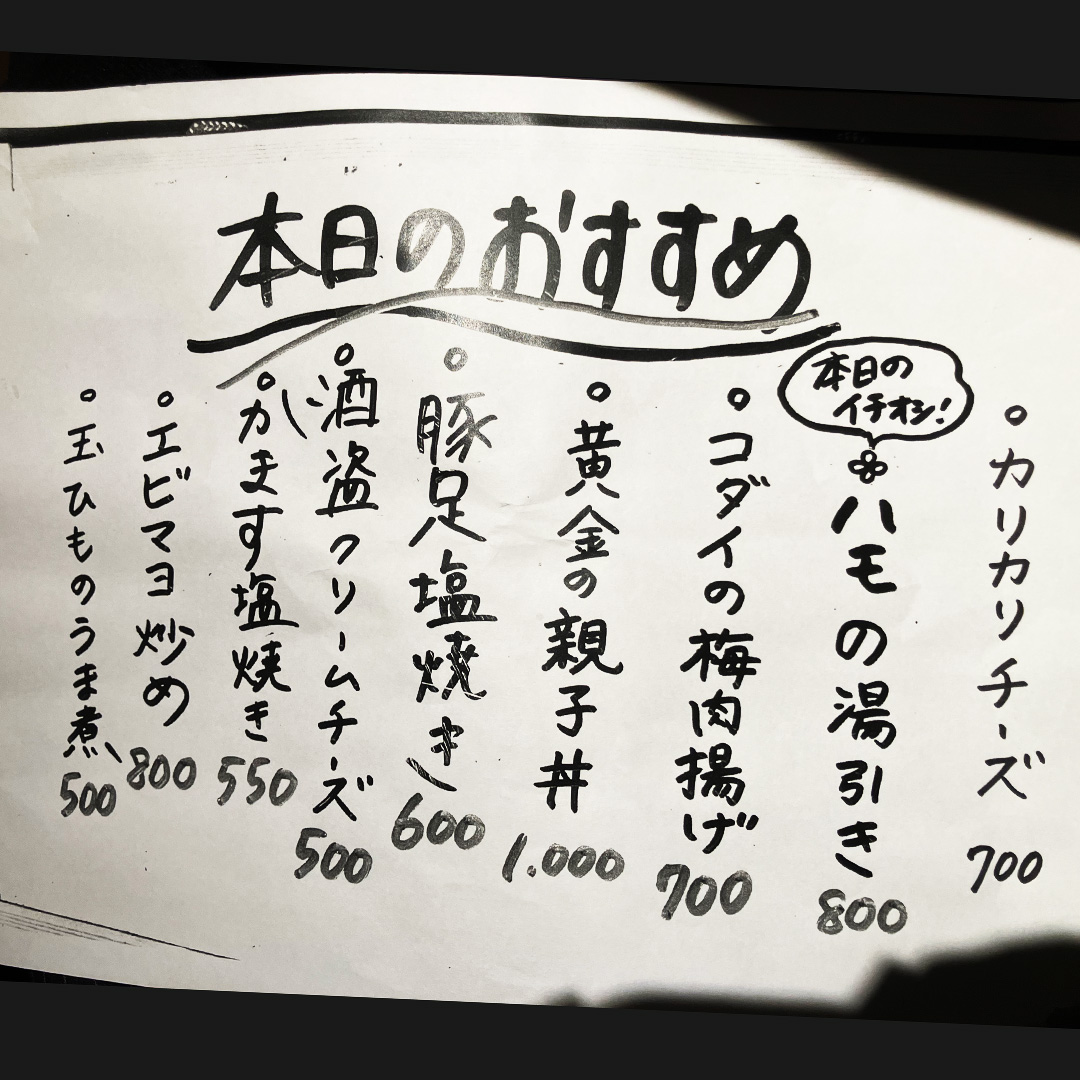 本日のおすすめ
カリカリチーズ
700
本日の
イチオシ!
ハモの湯引き
800
コダイの梅肉揚げ
700
黄金の親子丼
1.000
豚足塩焼き
600
酒盗クリームチーズ
500
かます塩焼き
550
エビマヨ炒め
800
玉ひものうま煮
500